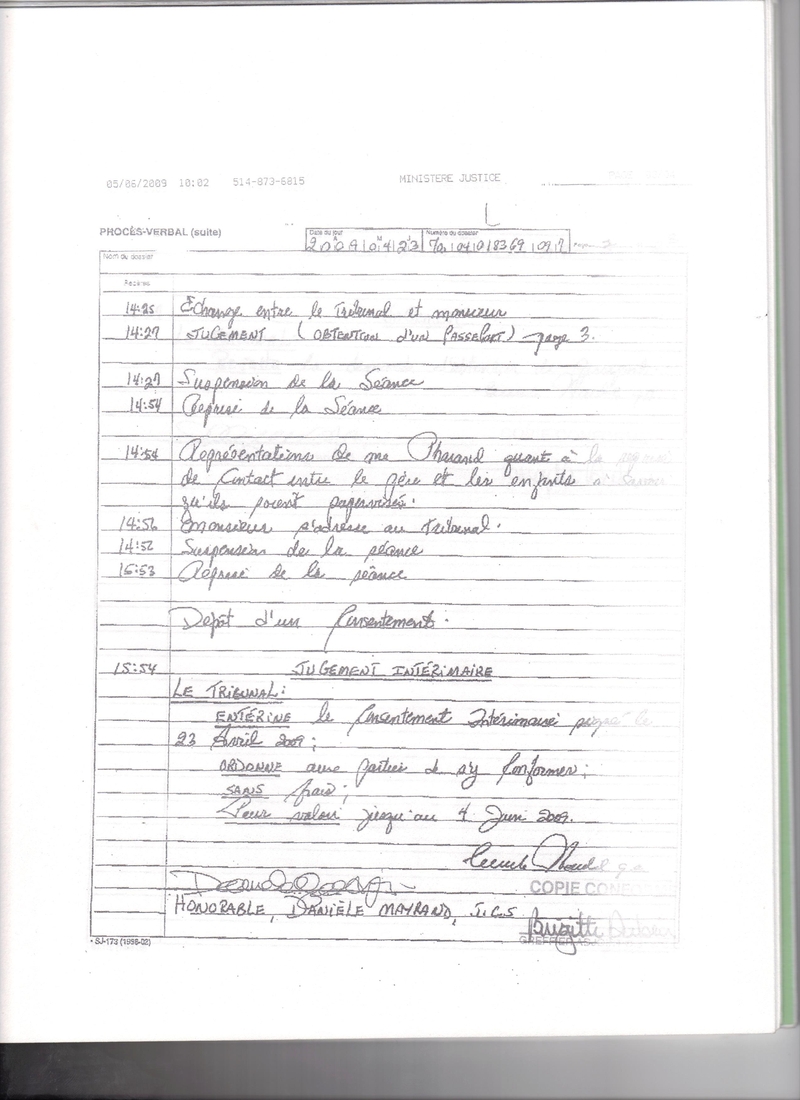 05/06/2009 10:02 514-873-6815 MINISTERE JUSTICE
PROCÈS-VERBAL (suite)
Date du jour
Numéro du dossier
2009 04 23
Nom du dossier
Repères
14:25 Échange entre le Tribunal et monsieur
14:27 JUGEMENT (OBTENTION d'un PASSEPORT) page 3.
14:27 Suspension de la Séance
14:54 Reprise de la Séance
14:54 Représentations de me quant à la
de contact entre le père et les enfants à savoir
qu'ils soient supervisés.
14:56 Monsieur s'adresse au Tribunal.
Suspension de la séance
15:53 Reprise de la séance
Dépôt d'un Consentement.
15:54 JUGEMENT INTÉRIMAIRE
LE TRIBUNAL:
ENTÉRINE le Consentement Intérimaire signé le
23 Avril 2009;
ORDONNE aux parties de s'y conformer;
SANS frais;
Pour valoir jusqu'au 4 Juin 2009.
COPIE
HONORABLE, DANIÈLE MAYRAND, J.C.S
Brigitte
SJ-173 (1998-02)